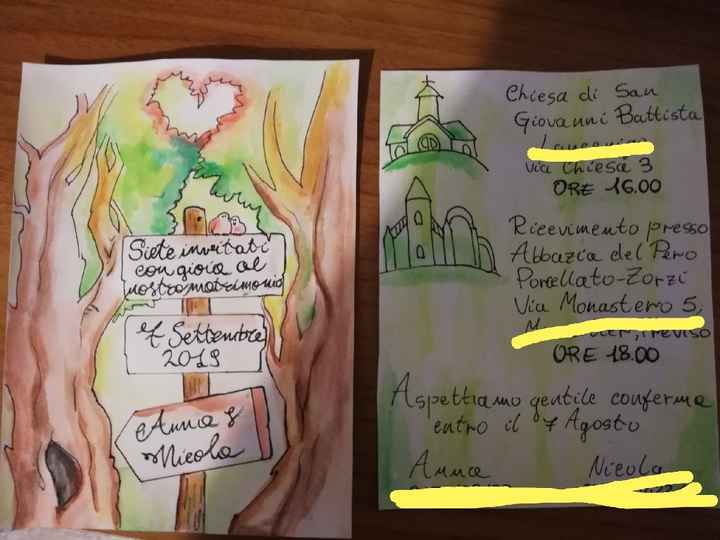 Siete invitati
con gioia al
nostro matrimonio
7 Settembre
2019
Anna &
Nicola
Chiesa di San
Giovanni Battista
Via Chiesa 3
ORE 16.00
Ricevimento presso
Abbazia del Pero
Porcellato-Zorzi
Via Monastero 5,
Treviso
ORE 18.00
Aspettiamo gentile conferma
entro il 7 Agosto
Anna Nicola